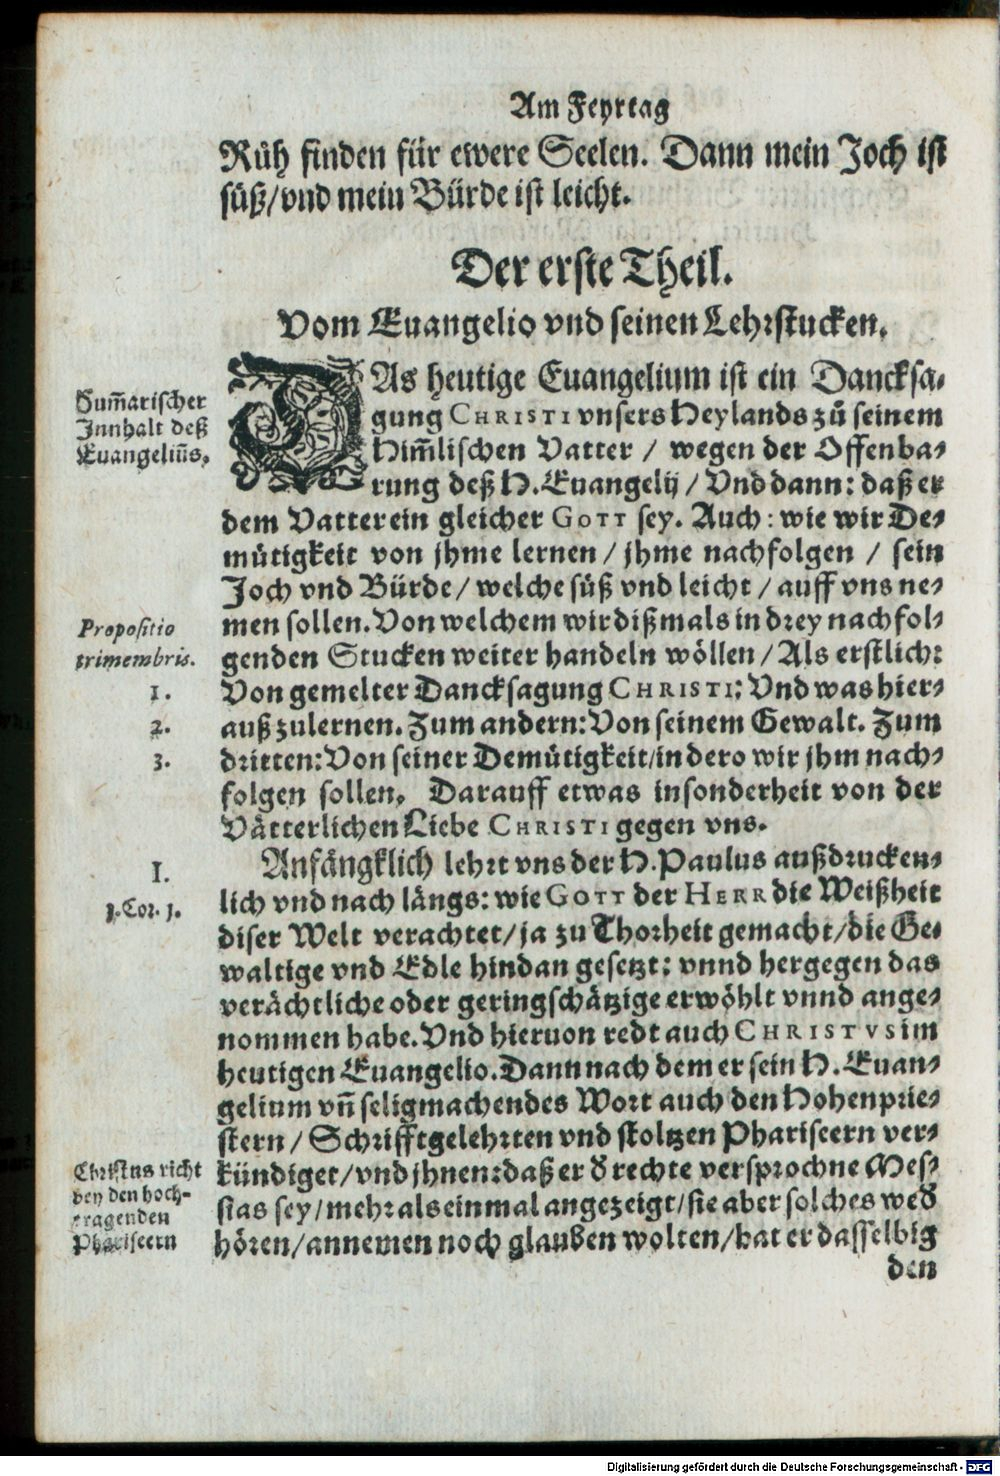 Am Feyrtag
Rüh finden für ewere Seelen. Dann mein Joch ist
süß/vnd mein Bürde ist leicht.
Der erste Theil.
Vom Euangelio vnd seinen Lehrstucken.
Sum̃arischer
Innhalt deß
Euangeliũs.
DAs heutige Euangelium ist ein Dancksa-
gung CHRISTI vnsers Heylands zů seinem
Him̃lischen Vatter / wegen der Offenba-
rung deß H. Euangelij / Vnd dann: daß er
dem Vatter ein gleicher GOTT sey. Auch: wie wir De-
můtigkeit von jhme lernen / jhme nachfolgen / sein
Joch vnd Bürde/ welche süß vnd leicht / auff vns ne-
men sollen. Von welchem wir dißmals in drey nachfol-
genden Stucken weiter handeln wöllen / Als erstlich:
Propositio
trimembris.
1.
Von gemelter Dancksagung CHRISTI: Vnd was hier-
2.
auß zulernen. Zum andern: Von seinem Gewalt. Zum
3.
dritten: Von seiner Demůtigkeit/in dero wir jhm nach-
folgen sollen. Darauff etwas insonderheit von der
Vätterlichen Liebe CHRISTI gegen vns.
I.
1.Cor. 1.
Anfängklich lehrt vns der H. Paulus außdrucken-
lich vnd nach längs: wie GOTT der HERR die Weißheit
diser Welt verachtet/ja zu Thorheit gemacht/die Ge-
waltige vnd Edle hindan gesetzt: vnnd hergegen das
verächtliche oder geringschätzige erwöhlt vnnd ange-
nommen habe. Vnd hieruon redt auch CHRISTVS im
heutigen Euangelio. Dann nach dem er sein H. Euan-
gelium vñ seligmachendes Wort auch den Hohenprie-
stern / Schrifftgelehrten vnd stoltzen Phariseern ver-
Christus richt
bey den hoch-
tragenden
Phariseern
kündiget/vnd jhnen: daß er d̕ rechte versprochne Mes-
sias sey/mehr als einmal angezeigt/sie aber solches wed̕
hören/annemen noch glauben wolten/hat er dasselbig
den
Digitalisierung gefördert durch die Deutsche Forschungsgemeinschaft - DFG